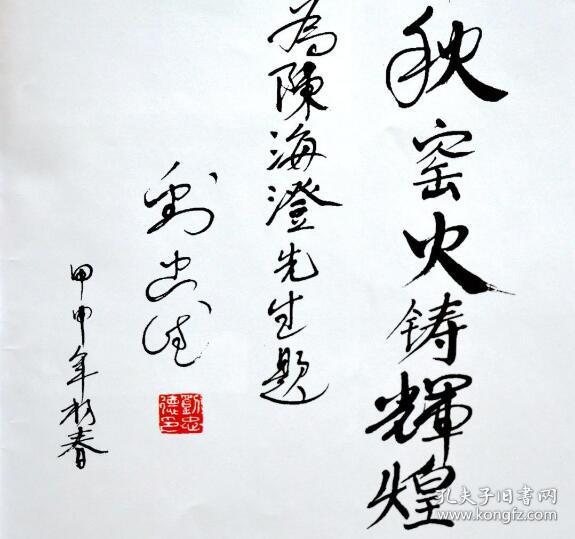 秋窑火铸輝煌
為陳海澄先生題
刘忠德
甲申年初春
劉忠
德印
孔夫子旧书网
kongfz.com